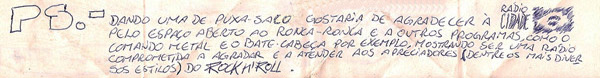 P.S.- DANDO UMA DE PUXA-SACO GOSTARIA DE AGRADECER À RÁDIO CIDADE
PELO ESPAÇO ABERTO AO RONCA-RONCA E A OUTROS PROGRAMAS, COMO O
COMANDO METAL E O BATE-CABEÇA POR EXEMPLO, MOSTRANDO SER UMA RÁDIO
COMPROMETIDA A AGRADAR E A ATENDER AOS APRECIADORES (DENTRO OS MAIS DIVER
SOS ESTILOS) DO ROCK N' ROLL.